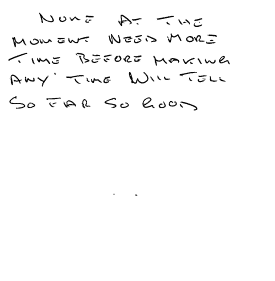 NONE AT THE
MOMENT NEED MORE
TIME BEFORE MAKING
ANY TIME WILL TELL
SO FAR SO GOOD